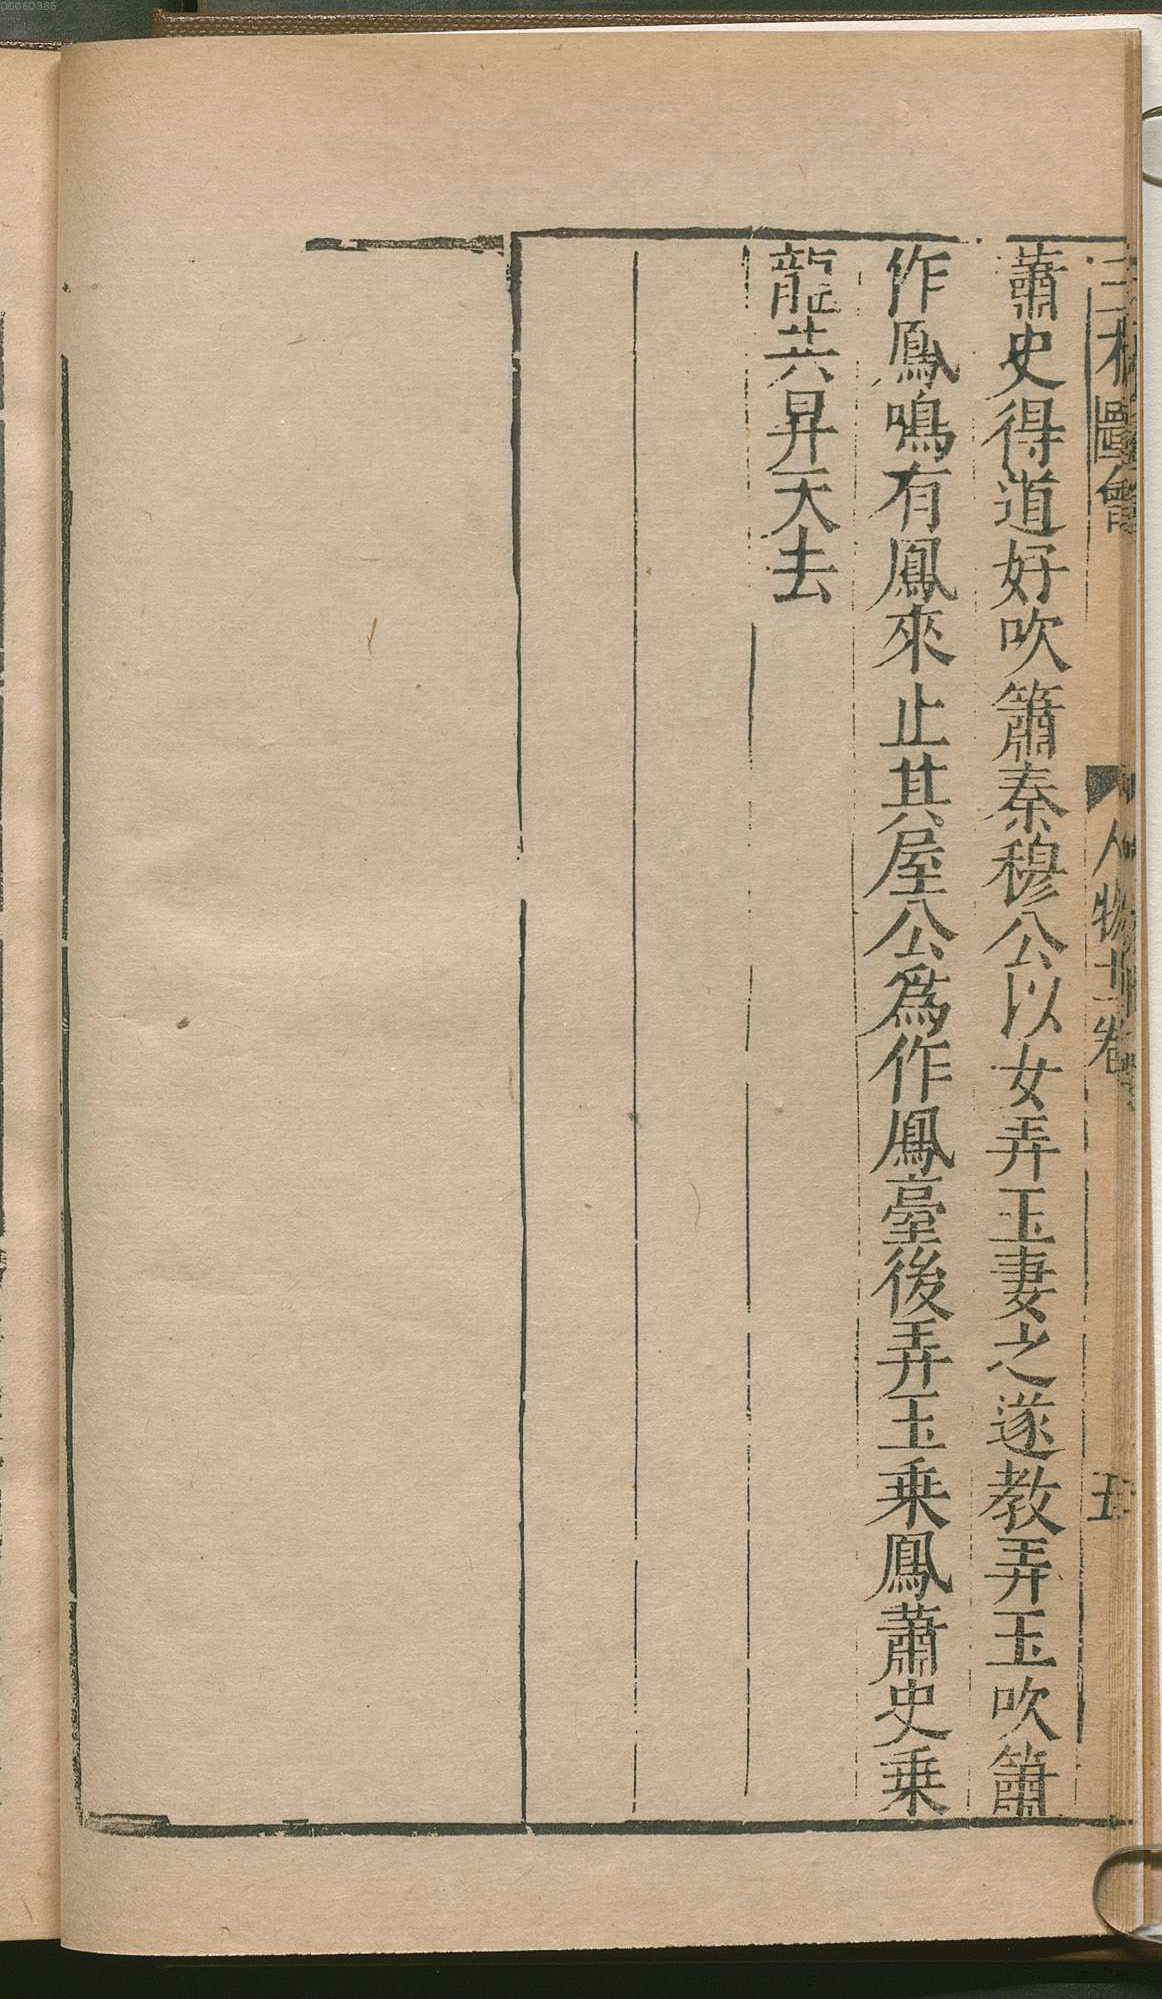 三才圖會 人物十一卷 五
蕭史得道好吹簫秦穆公以女弄玉妻之遂教弄玉吹簫
作鳳鳴有鳳來止其屋公爲作鳳臺後弄玉乗鳳蕭史乗
龍共昇天去
00060385